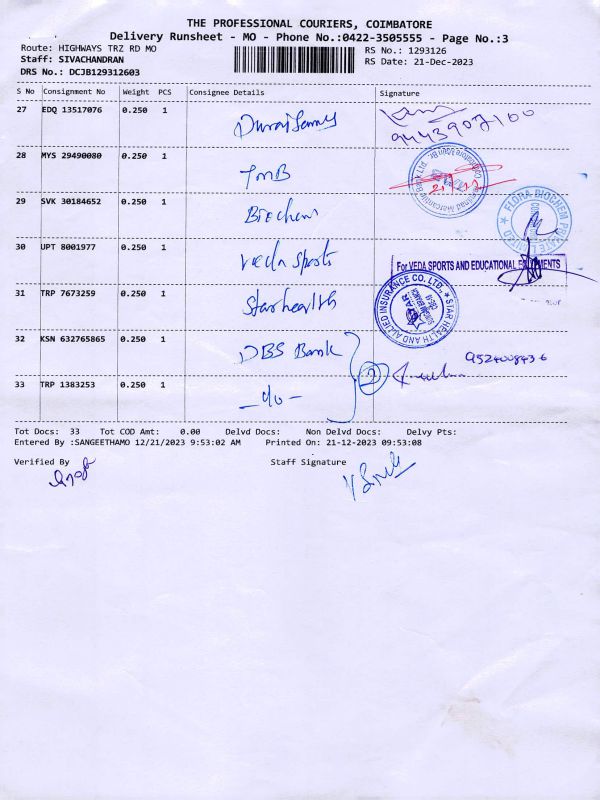 THE PROFESSIONAL COURIERS, COIMBATORE
Delivery Runsheet - MO - Phone No.:0422-3505555 - Page No.:3
Route: HIGHWAYS TRZ RD MO
RS No.: 1293126
Staff: SIVACHANDRAN
RS Date: 21-Dec-2023
DRS No.: DCJB129312603
S No Consignment No Weight PCS Consignee Details Signature
27 EDQ 13517076 0.250 1
9443907100
28 MYS 29490080 0.250 1 TMB
29 SVK 30184652 0.250 1 Biochem
FLORA BIOCHEM PRIVATE LIMITED
30 UPT 8001977 0.250 1 Veeda Sports
For VEDA SPORTS AND EDUCATIONAL
31 TRP 7673259 0.250 1 Starhealth
STAR HEALTH AND ALLIED INSURANCE CO. LTD.,
32 KSN 632765865 0.250 1 DBS Bank
2
33 TRP 1383253 0.250 1 - do -
Tot Docs: 33 Tot COD Amt: 0.00 Delvd Docs: Non Delvd Docs: Delvy Pts:
Entered By :SANGEETHAMO 12/21/2023 9:53:02 AM Printed On: 21-12-2023 09:53:08
Verified By Staff Signature